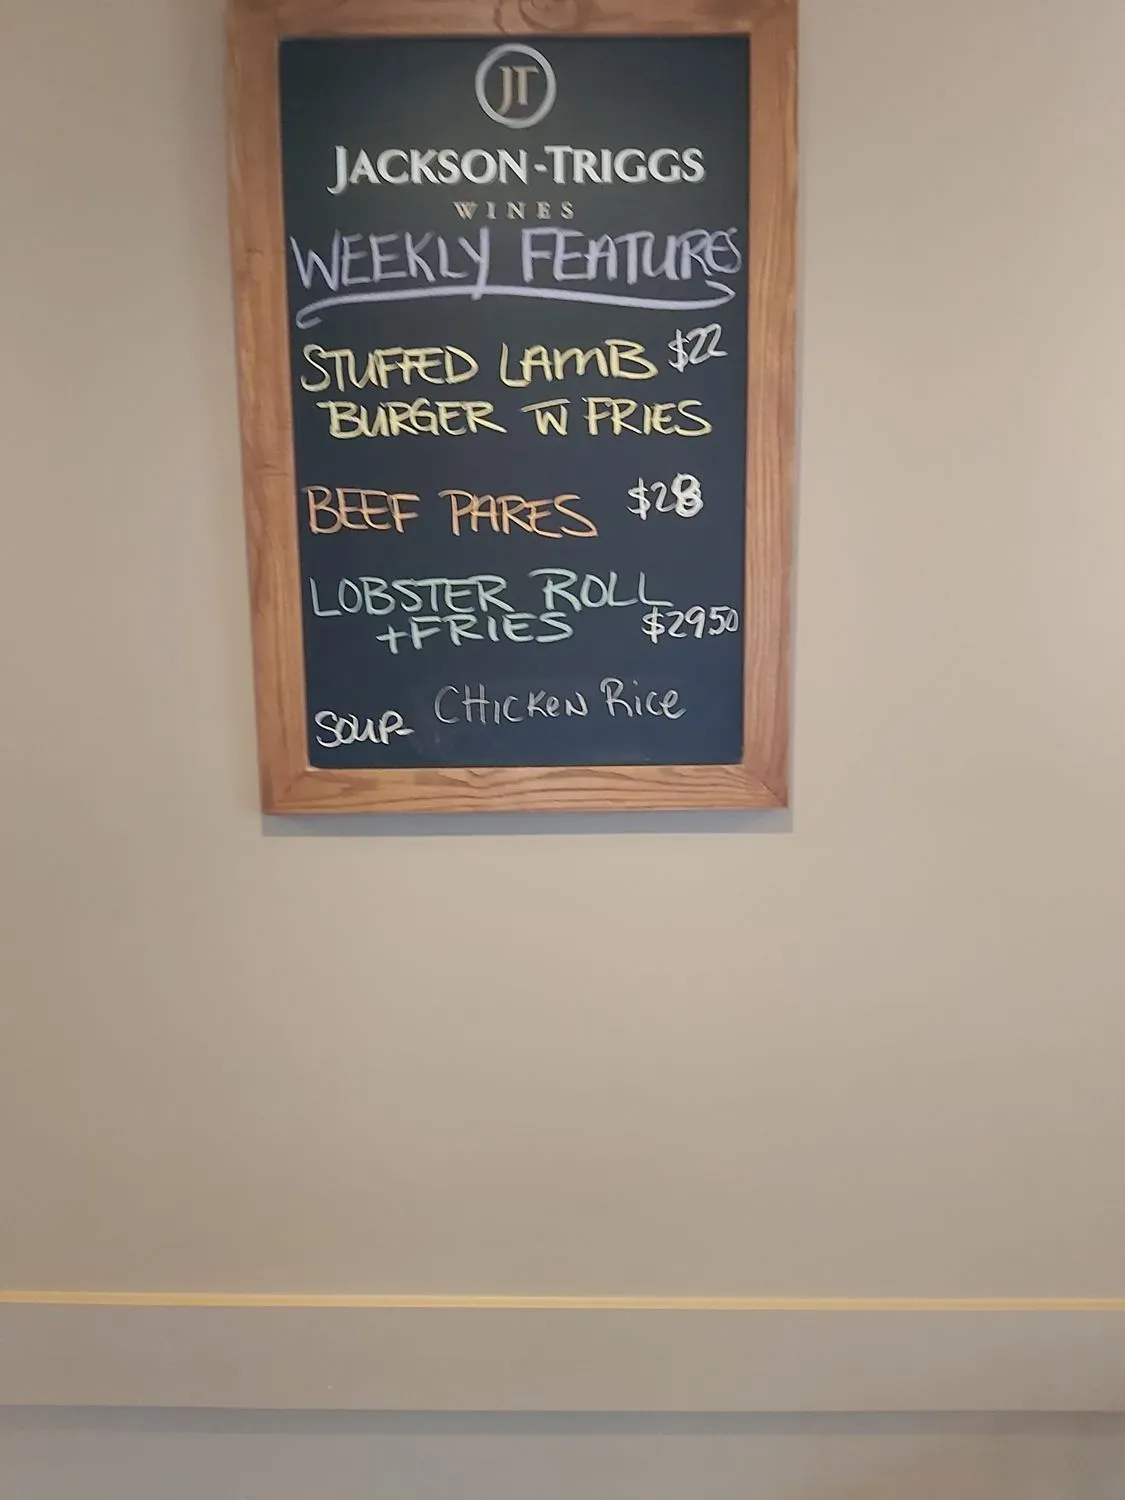 JT
JACKSON-TRIGGS
WINES
WEEKLY FEATURES
STUFFED LAMB $22
BURGER W FRIES
BEEF PARES $28
LOBSTER ROLL
+FRIES $2950
SOUP- CHICKEN RICE